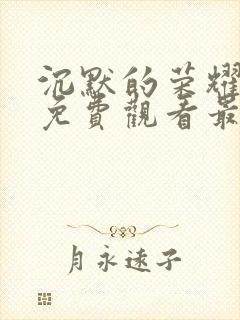 沉默的荣耀
免費觀看最
月永远子